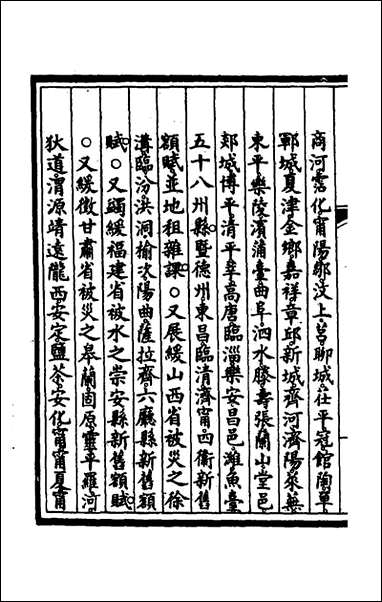 商河霑化甯陽鄒汶上莒聊城茌平冠館陶單
鄆城夏津金鄉嘉祥章邱新城齊河濟陽萊蕪
東平樂陵濱蒲臺曲阜泗水滕壽張蘭山堂邑
郯城博平清平莘高唐臨淄樂安昌邑濰魚臺
五十八州縣暨德州東昌臨清濟甯四衞新舊
額賦並地租雜課○又展緩山西省被災之徐
溝臨汾洪洞榆次陽曲薩拉齊六廳縣新舊額
賦○又蠲緩福建省被水之崇安縣新舊額賦
○又緩徵甘肅省被災之皋蘭固原靈平羅河
狄道渭源靖遠隴西安定鹽茶安化甯甯夏甯